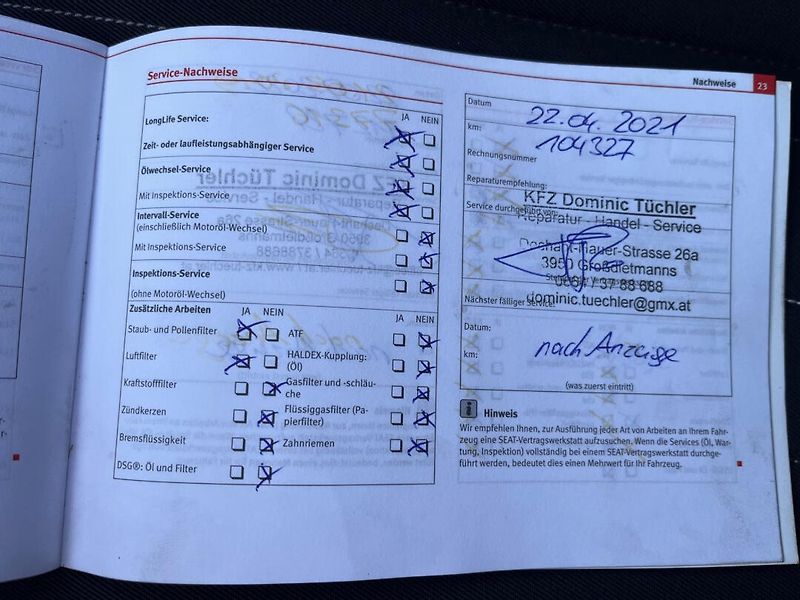 Nachweise 23
Service-Nachweise
JA NEIN
LongLife Service:
Zeit- oder laufleistungsabhängiger Service
Ölwechsel-Service
Mit Inspektions-Service
Intervall-Service
(einschließlich Motoröl-Wechsel)
Mit Inspektions-Service
Inspektions-Service
(ohne Motoröl-Wechsel)
Zusätzliche Arbeiten JA NEIN JA NEIN
Staub- und Pollenfilter ATF
Luftfilter HALDEX-Kupplung:
(Öl)
Kraftstofffilter Gasfilter und -schläu-
che
Zündkerzen Flüssiggasfilter (Pa-
pierfilter)
Bremsflüssigkeit Zahnriemen
DSG®: Öl und Filter
Datum 22.04.2021
km: 104327
Rechnungsnummer
Reparaturempfehlung:
KFZ Dominic Tüchler
Service durchgeführt von:
Reparatur - Handel - Service
Dechant-Hauer-Strasse 26a
3950 Großdietmanns
0664 / 37 88 688
dominic.tuechler@gmx.at
Nächster fälliger Service:
Datum:
km: nach Anzeige
(was zuerst eintritt)
Hinweis
Wir empfehlen Ihnen, zur Ausführung jeder Art von Arbeiten an Ihrem Fahr-
zeug eine SEAT-Vertragswerkstatt aufzusuchen. Wenn die Services (Öl, War-
tung, Inspektion) vollständig bei einem SEAT-Vertragswerkstatt durchge-
führt werden, bedeutet dies einen Mehrwert für Ihr Fahrzeug.